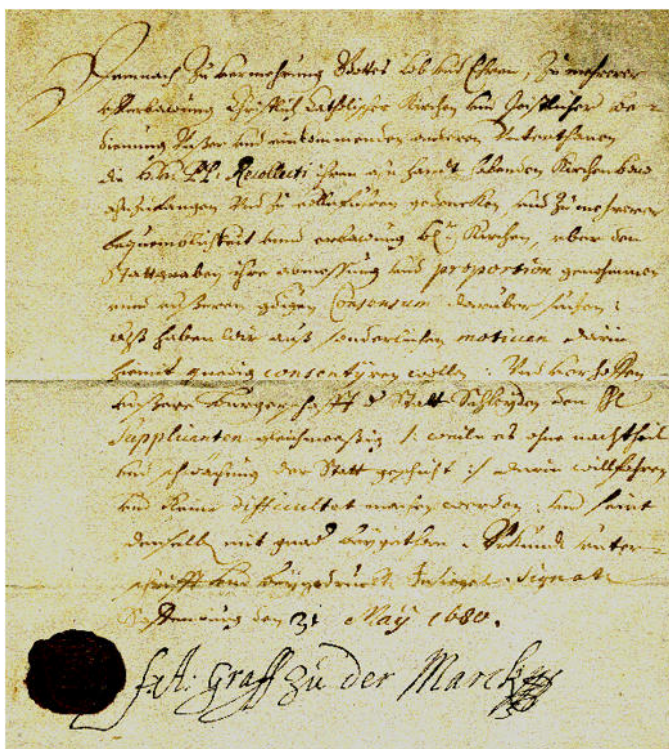 Demnach Zu vermehrung Gottes Lob und Ehren, Zu mehrerer
Christlich Catholischer Kirchen und Geistlicher be-
dienung Unßer und einkommenden anderen Unterthanen
die PP. Recollecti ihren an handt habenden Kirchenbaw
anzufangen Und zu vollnführen gedencken, und Zu mehrerer
bequemblichkeit unnd erbawung Kirchen, uber den
Stattgraben ihre abmessung und proportion genohmmen
unnd gdigen Consensum darüber suchen;
Alß haben Wir auß sonderlichen motiven darin
hiemit gnedig consentyren wollen; Und verhoffen
unßere burgerschafft Statt Schleyden den
Supplicanten gleichmeeßig /: weile es ohne nachtheil
und schwächung der Statt geschicht :/ darin willfahren
und keine difficultet machen werden; und seint
mit gnad beygethan. Urkundt unter-
schrifft und beygedruckt Insiegel. Signat.
Saffenburg den 31 May 1680.
Graff zu der Marck